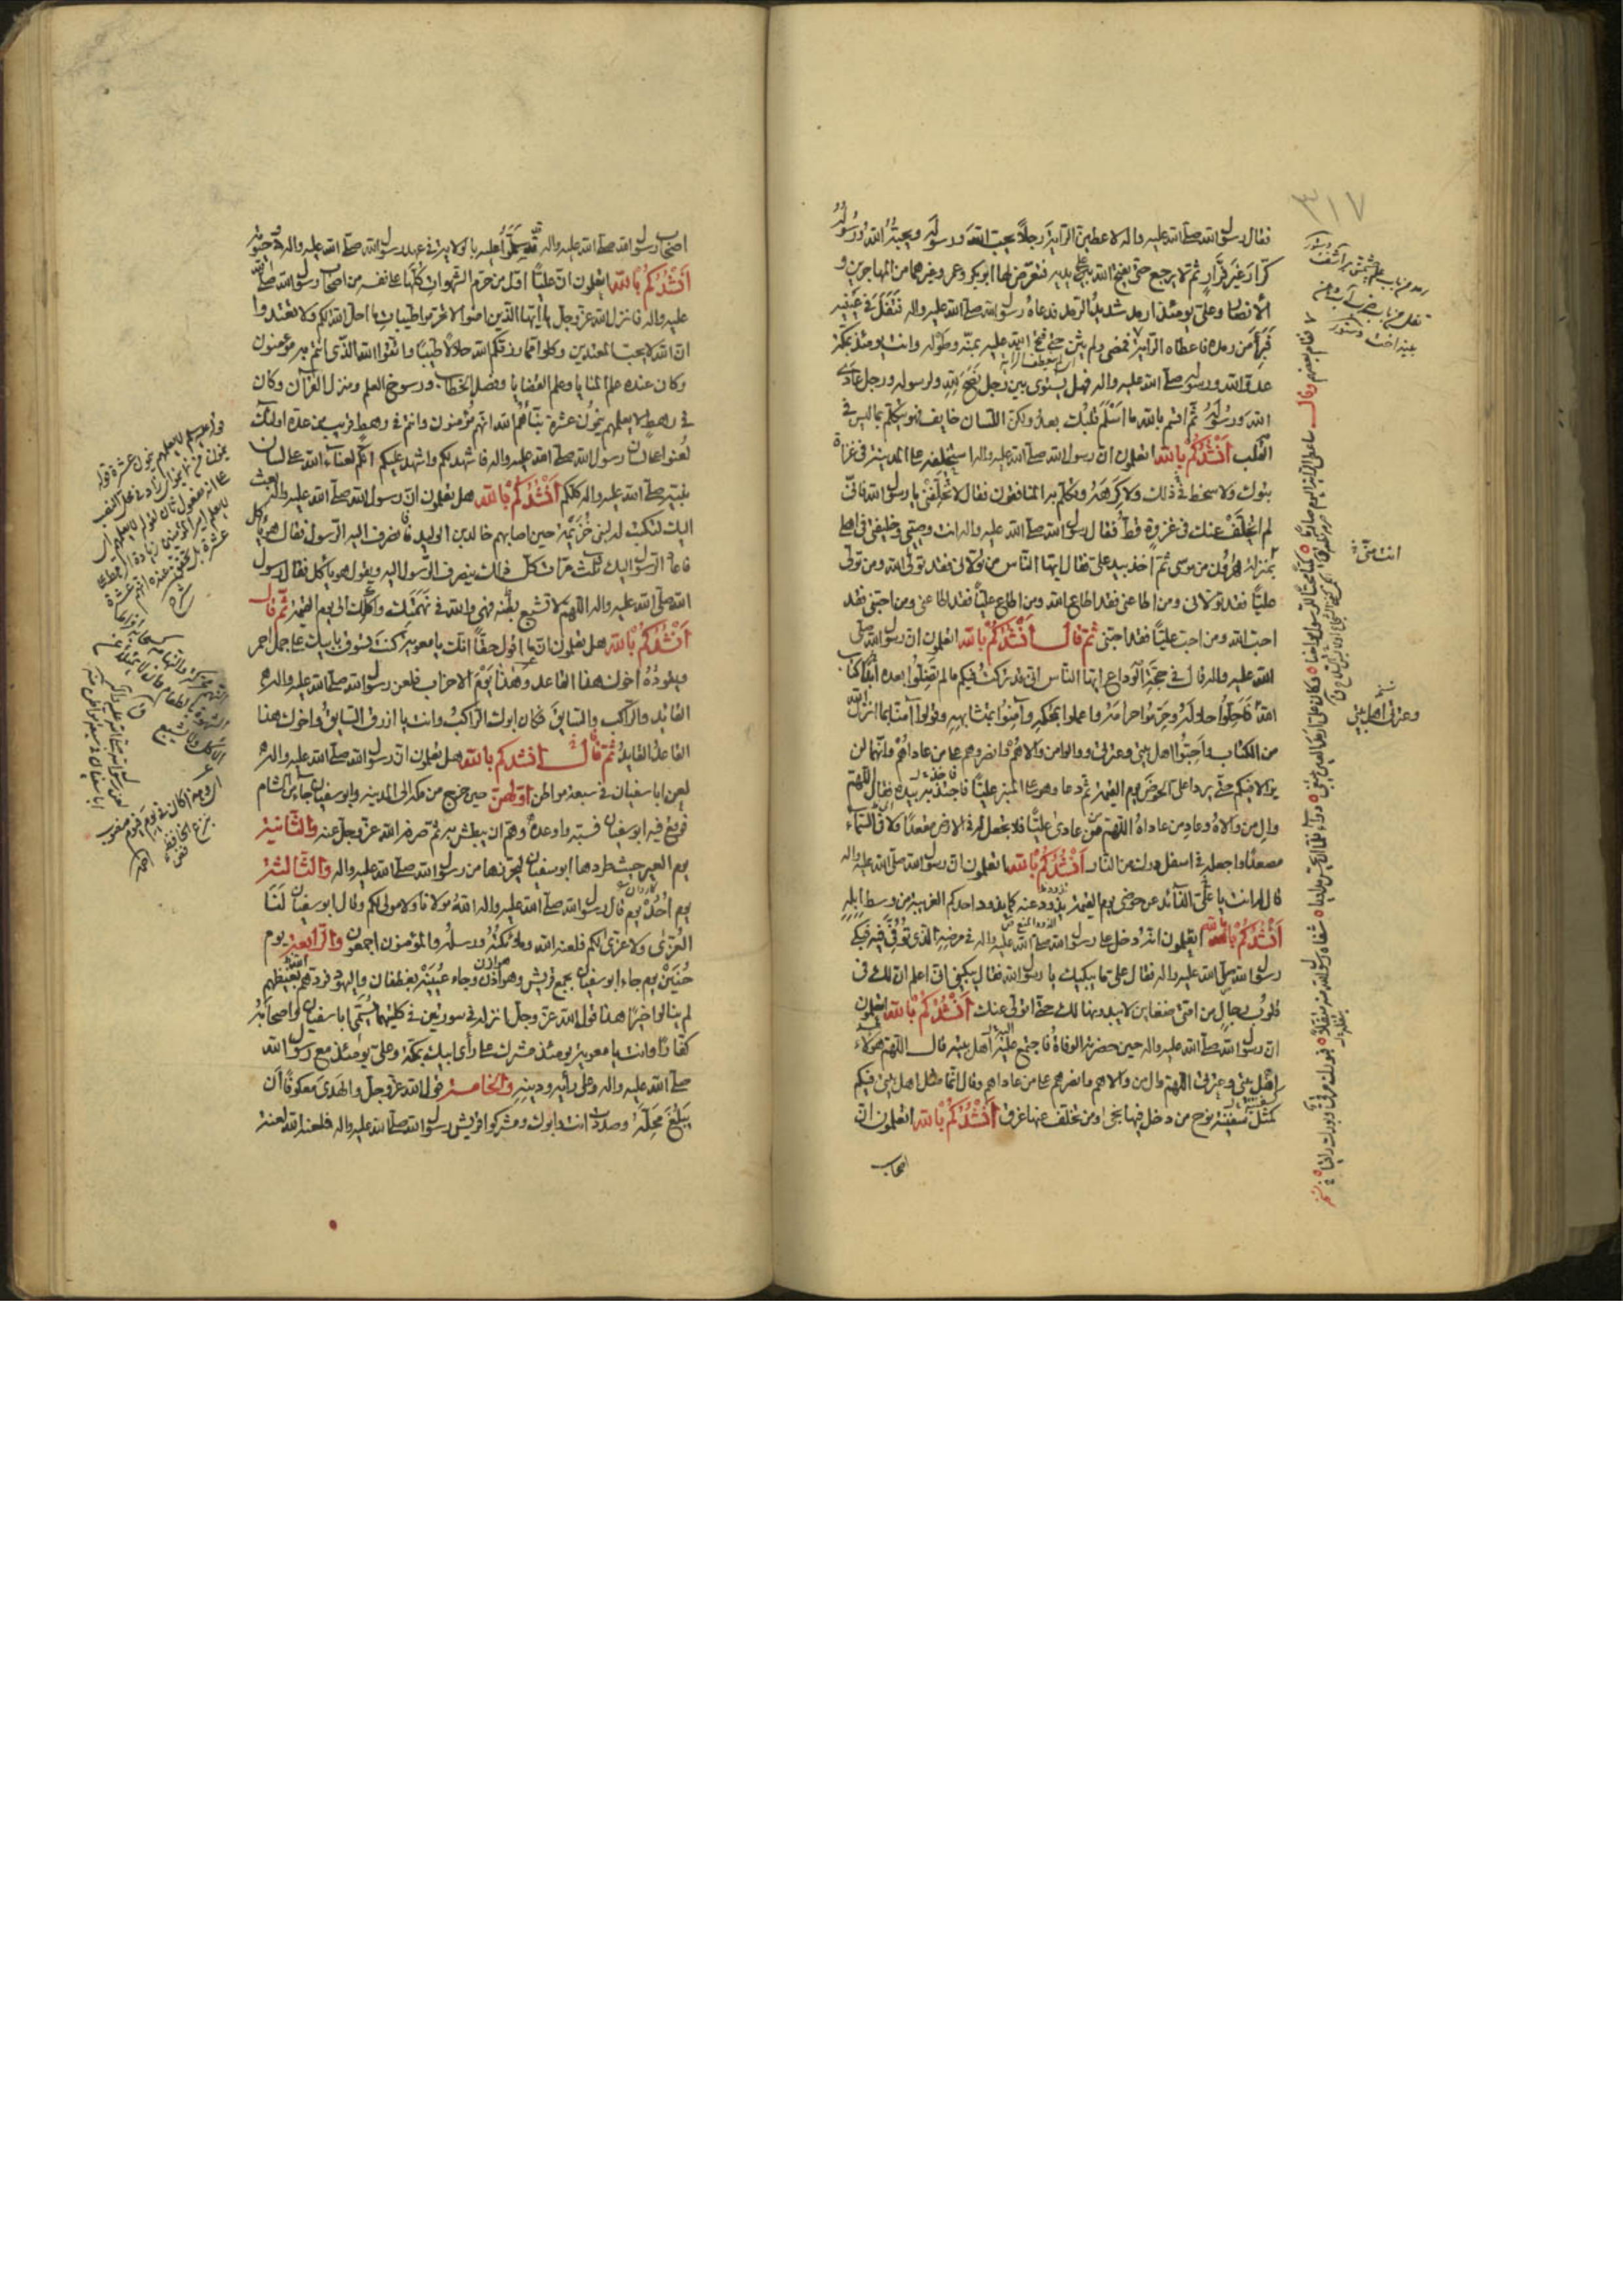 فقال رسول الله صلى الله عليه واله لاعطين الراية رجلاً يحب الله ورسوله ويحبه الله ورسوله
كرار غير فرار ثم لا يرجع حتى يفتح الله على يديه فتعرض لها ابو بكر وعمر وغيرهما من المهاجرين و
الانصار وعلى يومئذ ارمد شديد الرمد فدعاه رسول الله صلى الله عليه واله فتفل فى عينيه
فبرأ من رمده فاعطاه الراية فمضى ولم يثن حتى فتح الله عليه بمنه وطوله وانت يومئذ بمكة
عدو الله ورسوله صلى الله عليه واله فهل يستوى بين رجل نصح لله ولرسوله ورجل عادى
الله ورسوله ثم اقسم بالله ما اسلم قلبك بعد ولكن اللسان خايف فهو يتكلم بما ليس فى
القلب أنشدكم بالله اتعلمون ان رسول الله صلى الله عليه واله استخلفه على المدينة فى غزاة
تبوك ولا سخط ذلك ولا كرهه وتكلم فيه المنافقون فقال لا تخلفنى يا رسول الله فانى
لم اتخلف عنك فى غزوة قط فقال رسول الله صلى الله عليه واله انت وصيى وخليفتى فى اهلى
بمنزلة هرون من موسى ثم اخذ بيد على فقال ايها الناس من تولانى فقد تولى الله ومن تولى
علياً فقد تولانى ومن اطاعنى فقد اطاع الله ومن اطاع علياً فقد اطاعنى ومن احبنى فقد
احب الله ومن احب علياً فقد احبنى ثم قال أنشدكم بالله اتعلمون ان رسول الله صلى
الله عليه واله قال فى حجة الوداع ايها الناس انى قد تركت فيكم ما لم تضلوا بعده كتاب
الله فاحلوا حلاله وحرموا حرامه واعملوا بمحكمه وآمنوا بمتشابهه وقولوا آمنا بما انزل الله
من الكتاب واحبوا اهل بيتى وعترتى ووالوا من والاهم وانصروهم على من عاداهم وانهما لن
يزالا فيكم حتى يردا على الحوض يوم القيمة ثم دعا وهو على المنبر علياً فاجتذبه بيده فقال اللهم
وال من والاه وعاد من عاداه اللهم من عادى علياً فلا تجعل له فى الارض مقعداً ولا فى السماء
مصعداً واجعله فى اسفل درك من النار أنشدكم بالله اتعلمون ان رسول الله صلى الله عليه واله
قال له انت يا على الذائد عن حوضى يوم القيمة تذود عنه كما يذود احدكم الغريبة من وسط ابله
أنشدكم بالله اتعلمون انه دخل على رسول الله صلى الله عليه واله فى مرضه الذى توفى فيه فبكى
رسول الله صلى الله عليه واله فقال على ما يبكيك يا رسول الله فقال يبكينى انى اعلم ان لك فى
قلوب رجال من امتى ضغاين لا يبدونها لك حتى اتولى عنك أنشدكم بالله اتعلمون
ان رسول الله صلى الله عليه واله حين حضرته الوفاة فاجتمع عليه اهل بيته قال اللهم هؤلاء
اهل بيتى وعترتى اللهم وال من والاهم وانصرهم على من عاداهم وقال انما مثل اهل بيتى فيكم
كمثل سفينة نوح من دخل فيها نجى ومن تخلف عنها غرق أنشدكم بالله اتعلمون ان
اصحاب
٣١٧
انت منى
وعترتى اهل بيتى
اصحاب رسول الله صلى الله عليه واله قد سلموا عليه بالولاية فى عهد رسول الله صلى الله عليه واله وحيوته
أنشدكم بالله اتعلمون ان علياً اول من حرم الشهوات كلها على نفسه من اصحاب رسول الله صلى الله
عليه واله فانزل الله عز وجل يا ايها الذين امنوا لا تحرموا طيبات ما احل الله لكم ولا تعتدوا
ان الله لا يحب المعتدين وكلوا مما رزقكم الله حلالاً طيبا واتقوا الله الذى انتم به مؤمنون
وكان عنده علم المنايا وعلم القضايا وفصل الخطاب ورسوخ العلم ومنزل القرآن وكان
فى رهط لا يعلمهم يتمون عشرة نبأهم الله انهم مؤمنون وانتم فى رهط قريب من عدة اولئك
لعنوا على لسان رسول الله صلى الله عليه واله فاشهد لكم واشهد عليكم انكم لعناء الله على لسان
نبيه صلى الله عليه واله كلكم أنشدكم بالله هل تعلمون ان رسول الله صلى الله عليه واله بعث
اليك لتكتب له لبنى خزيمة حين اصابهم خالد بن الوليد فانصرف اليه الرسول فقال هو ياكل
فاعاد الرسول اليك ثلث مرات كل ذلك ينصرف الرسول اليه ويقول هو ياكل فقال رسول
الله صلى الله عليه واله اللهم لا تشبع بطنه فهى والله فى نهمتك واكلك الى يوم القيمة ثم قال
أنشدكم بالله هل تعلمون ان ما اقول حقاً انك يا معوية كنت تسوق بابيك على جمل احمر
ويقوده اخوك هذا القاعد وهذا يوم الاحزاب فلعن رسول الله صلى الله عليه واله
القائد والراكب والسايق فكان ابوك الراكب وانت يا ازرق السايق واخوك هذا
القاعد القايد ثم قال أنشدكم بالله هل تعلمون ان رسول الله صلى الله عليه واله
لعن ابا سفيان فى سبعة مواطن اولهن حين خرج من مكة الى المدينة وابو سفيان جاء من الشام
فوقع فيه ابو سفيان فسبه واوعده وهم ان يبطش به ثم صرفه الله عز وجل عنه والثانية
يوم العير حيث طردها ابو سفيان ليحرزها من رسول الله صلى الله عليه واله والثالثة
يوم احد يوم قال رسول الله صلى الله عليه واله الله مولانا ولا مولى لكم وقال ابو سفيان لنا
العزى ولا عزى لكم فلعنه الله وملائكته ورسله والمؤمنون اجمعون والرابعة يوم
حنين يوم جاء ابو سفيان بجمع قريش وهوازن وجاء عيينة بغطفان واليهود فردهم الله بغيظهم
لم ينالوا خيراً هذا قول الله عز وجل انزله فى سورتين فى كلتيهما يسمى ابا سفيان واصحابه
كفاراً وانت يا معوية يومئذ مشرك على رأى ابيك بمكة وعلى يومئذ مع رسول الله
صلى الله عليه واله وعلى رأيه ودينه والخامسة قول الله عز وجل والهدى معكوفاً ان
يبلغ محله وصددت انت وابوك ومشركوا قريش رسول الله صلى الله عليه واله فلعنه الله لعنة